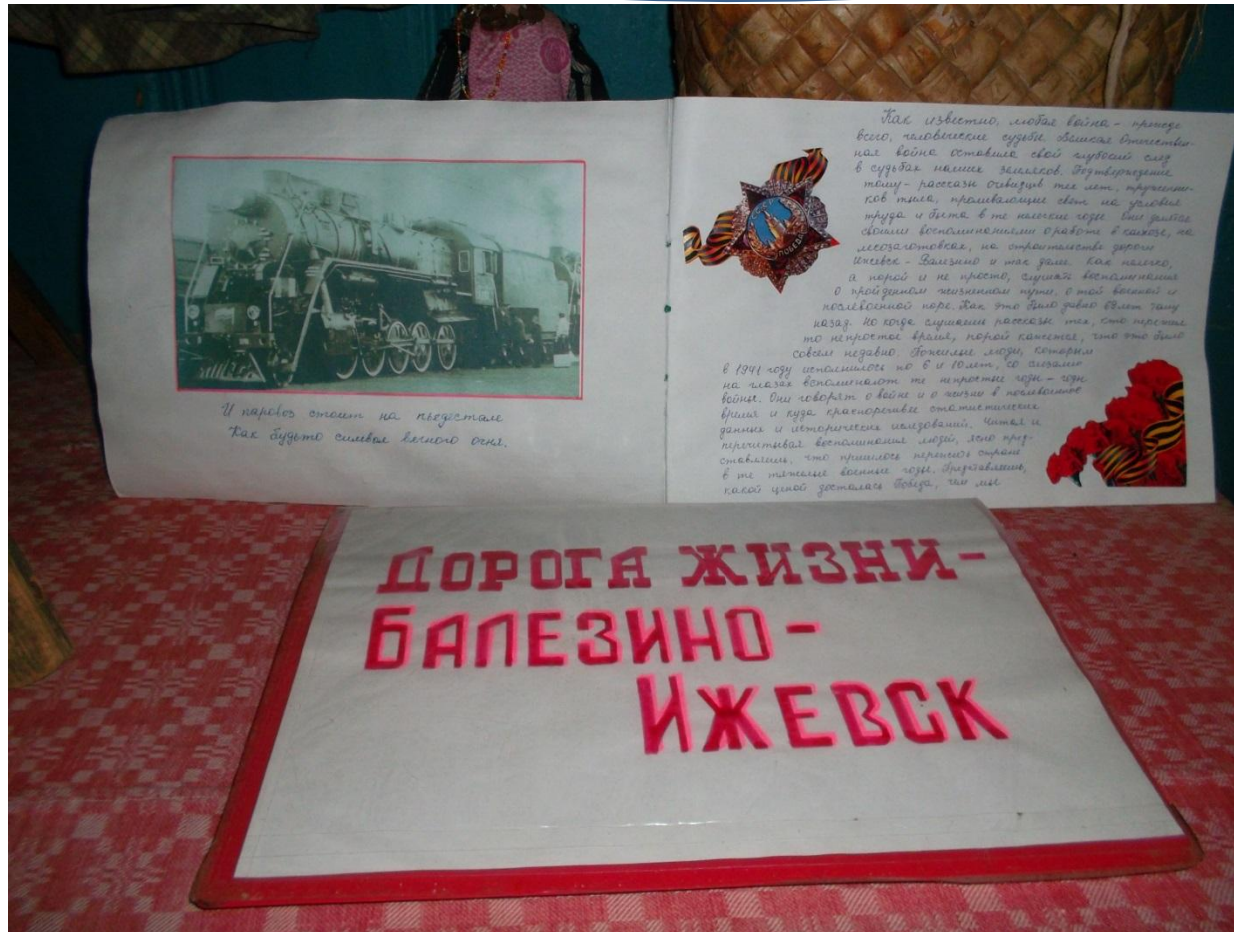 И паровоз стоит на пьедестале
Как будьто символ вечного огня.
Как известно, любая война - прежде
всего, человеческие судьбы. Великая Отечествен-
ная война оставила свой глубокий след
в судьбах наших земляков. Подтверждение
тому - рассказы очевидцев тех лет, тружени-
ков тыла, проливающие свет на условия
труда и быта в те нелегкие годы. Они делятся
своими воспоминаниями о работе в колхозе, на
лесозаготовках, на строительстве дороги
Ижевск - Балезино и так далее. Как нелегко,
а порой и не просто, слушать воспоминания
о пройденном жизненном пути, о той военной и
послевоенной поре. Как это было давно лет тому
назад. Но когда слушаешь рассказы тех, кто пережил
то непростое время, порой кажется, что это было
совсем недавно. Пожилые люди, которым
в 1941 году исполнилось по 6 и 10 лет, со слезами
на глазах вспоминают те непростые годы - годы
войны. Они говорят о войне и о жизни в послевоенное
время и куда красноречивее статистические
данных и исторических исследований. Читая и
перечитывая воспоминания людей, ясно пред-
ставляешь, что пришлось пережить стране
в те тяжелые военные годы. Представляешь,
какой ценой досталась Победа, чем мы
ДОРОГА ЖИЗНИ-
БАЛЕЗИНО-
ИЖЕВСК